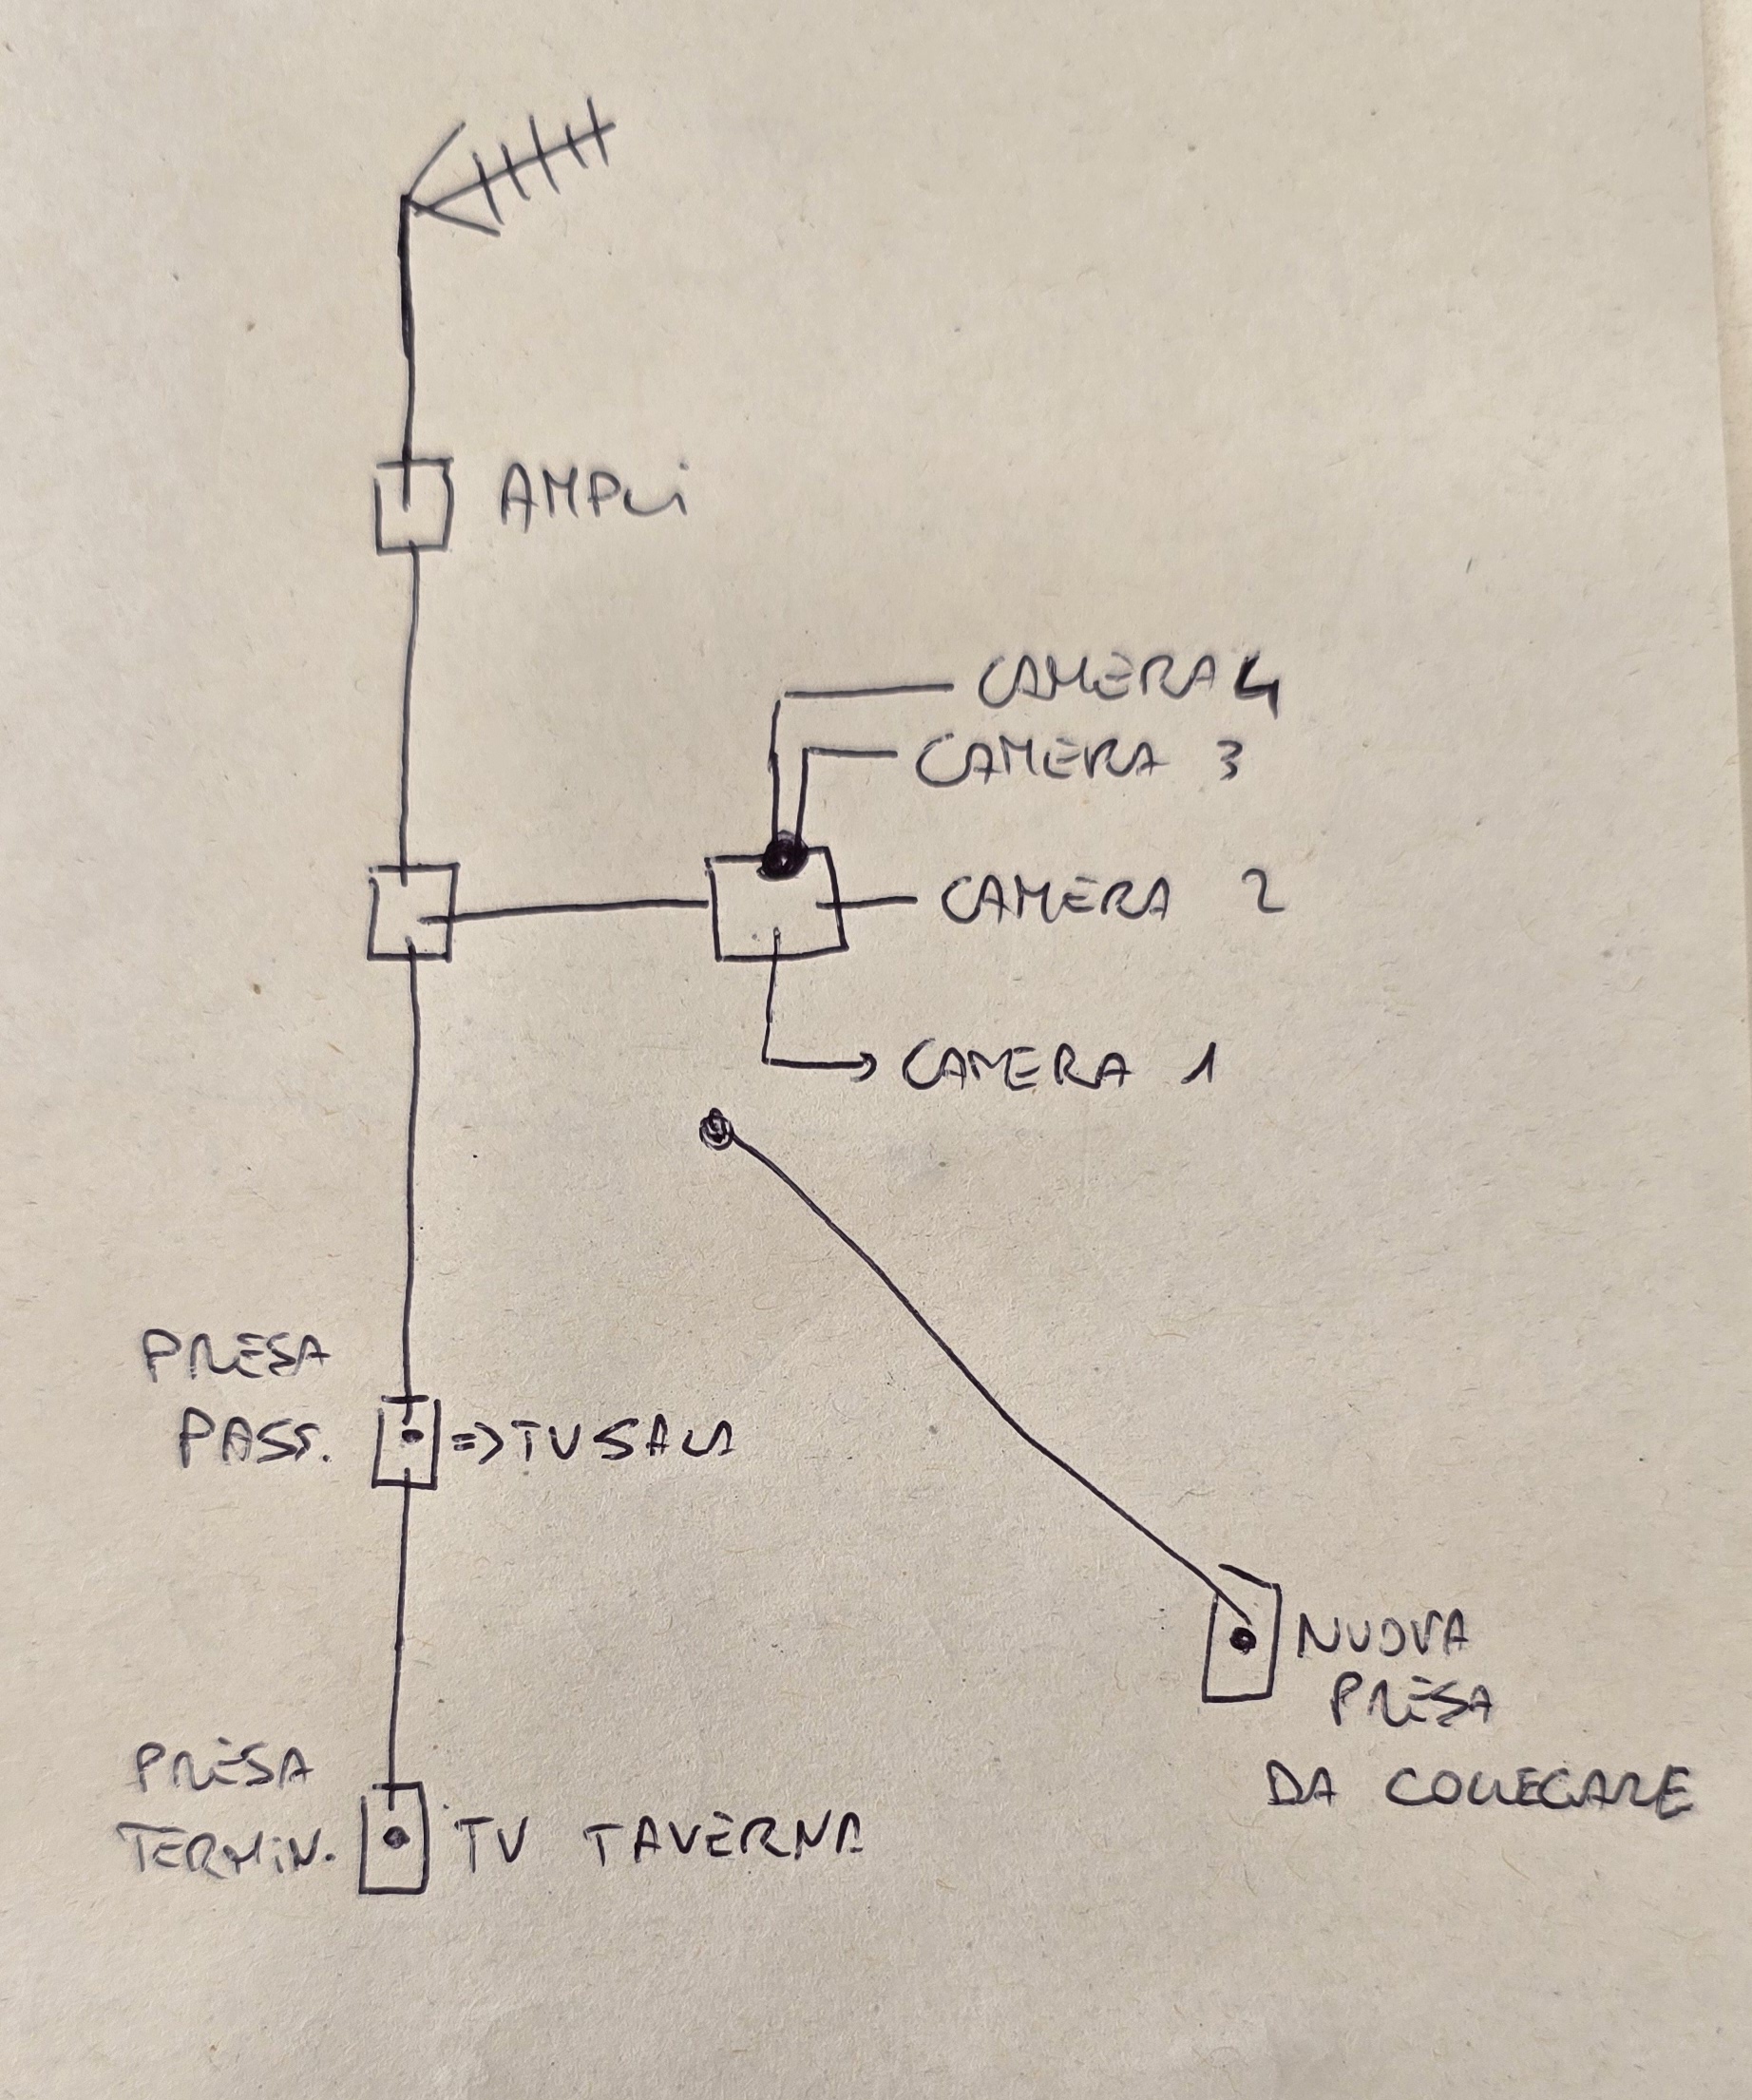 AMPLi
CAMERA 4
CAMERA 3
CAMERA 2
CAMERA 1
PRESA
PASS.
=> TV SALA
NUOVA
PRESA
DA COLLEGARE
PRESA
TERMiN.
TV TAVERNA